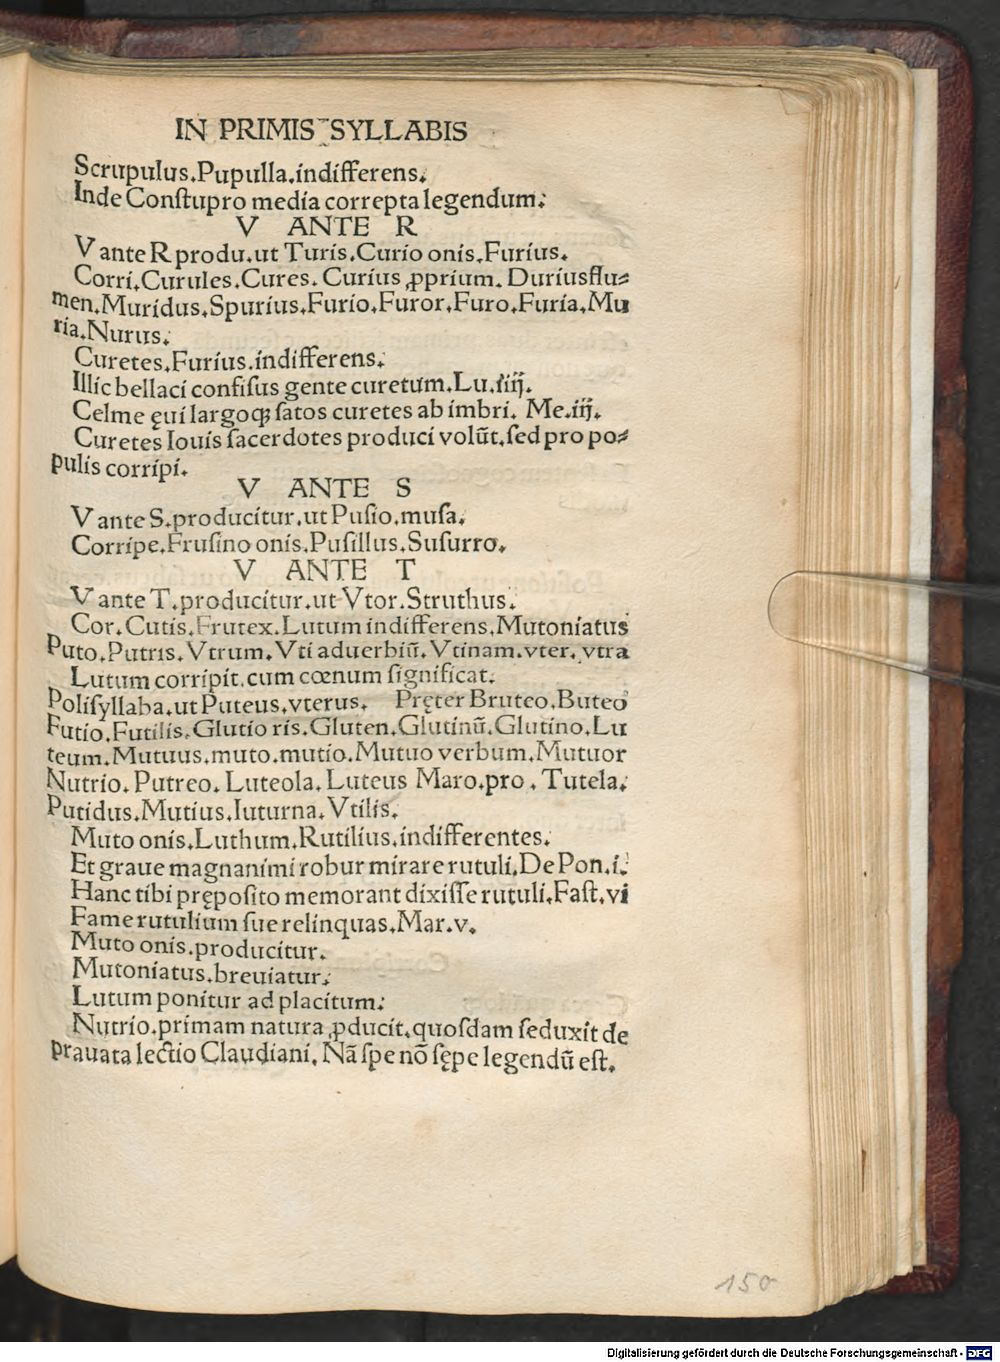 IN PRIMIS SYLLABIS
Scrupulus.Pupulla.indifferens.
Inde Constupro media correpta legendum:
V ANTE R
V ante R produ.ut Turis.Curio onis.Furius.
Corri.Curules.Cures.Curius ꝓprium. Duriusflu⸗
men.Muridus.Spurius.Furio.Furor.Furo.Furia.Mu
ria.Nurus.
Curetes.Furius.indifferens.
Illic bellaci confisus gente curetum.Lu.iiij.
Celme ęui largoqꝫ satos curetes ab imbri. Me.iij.
Curetes Iouis sacerdotes produci volũt.sed pro po⸗
pulis corripi.
V ANTE S
V ante S.producitur.ut Pusio.musa.
Corripe.Frusino onis.Pusillus.Susurro.
V ANTE T
V ante T.producitur.ut Vtor.Struthus.
Cor.Cutis.Frutex.Lutum indifferens.Mutoniatus
Puto.Putris.Vtrum.Vti aduerbiũ.Vtinam.vter.vtra
Lutum corripit.cum cœnum significat.
Polisyllaba.ut Puteus.vterus. Pręter Bruteo.Buteo
Futio.Futilis.Glutio ris.Gluten.Glutinũ.Glutino.Lu
teum.Mutuus.muto.mutio.Mutuo verbum.Mutuor
Nutrio.Putreo.Luteola.Luteus Maro.pro.Tutela.
Putidus.Mutius.Iuturna.Vtilis.
Muto onis.Luthum.Rutilius.indifferentes.
Et graue magnanimi robur mirare rutuli.De Pon.i.
Hanc tibi pręposito memorant dixisse rutuli.Fast.vi
Fame rutulium sue relinquas.Mar.v.
Muto onis.producitur.
Mutoniatus.breuiatur.
Lutum ponitur ad placitum:
Nutrio.primam natura ꝓducit.quosdam seduxit de
prauata lectio Claudiani. Nã spe nõ sępe legendũ est.
150
Digitalisierung gefördert durch die Deutsche Forschungsgemeinschaft - DFG